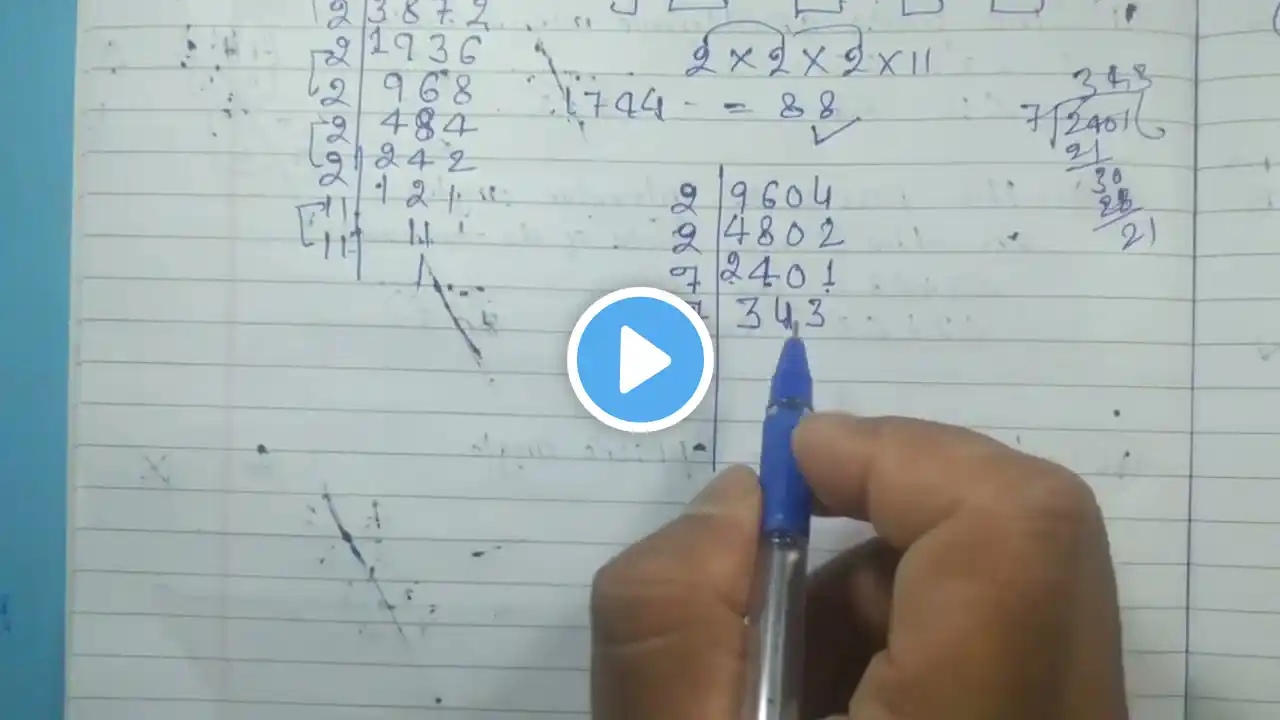 2 3872
2 1936
2 968
2 484
2 242
11 121
11 11
1
2 × 2 × 2 × 11
1744 = 88
2 9604
2 4802
7 2401
7 343
343
7 2401
21
30
28
21